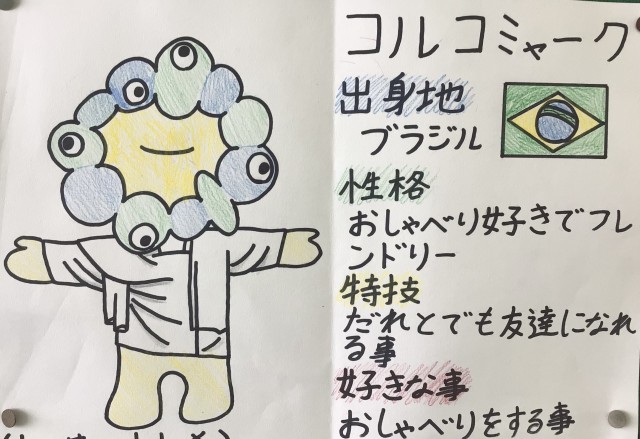 コルコミャーク
出身地
ブラジル
性格
おしゃべり好きでフレ
ンドリー
特技
だれとでも友達になれ
る事
好きな事
おしゃべりをする事